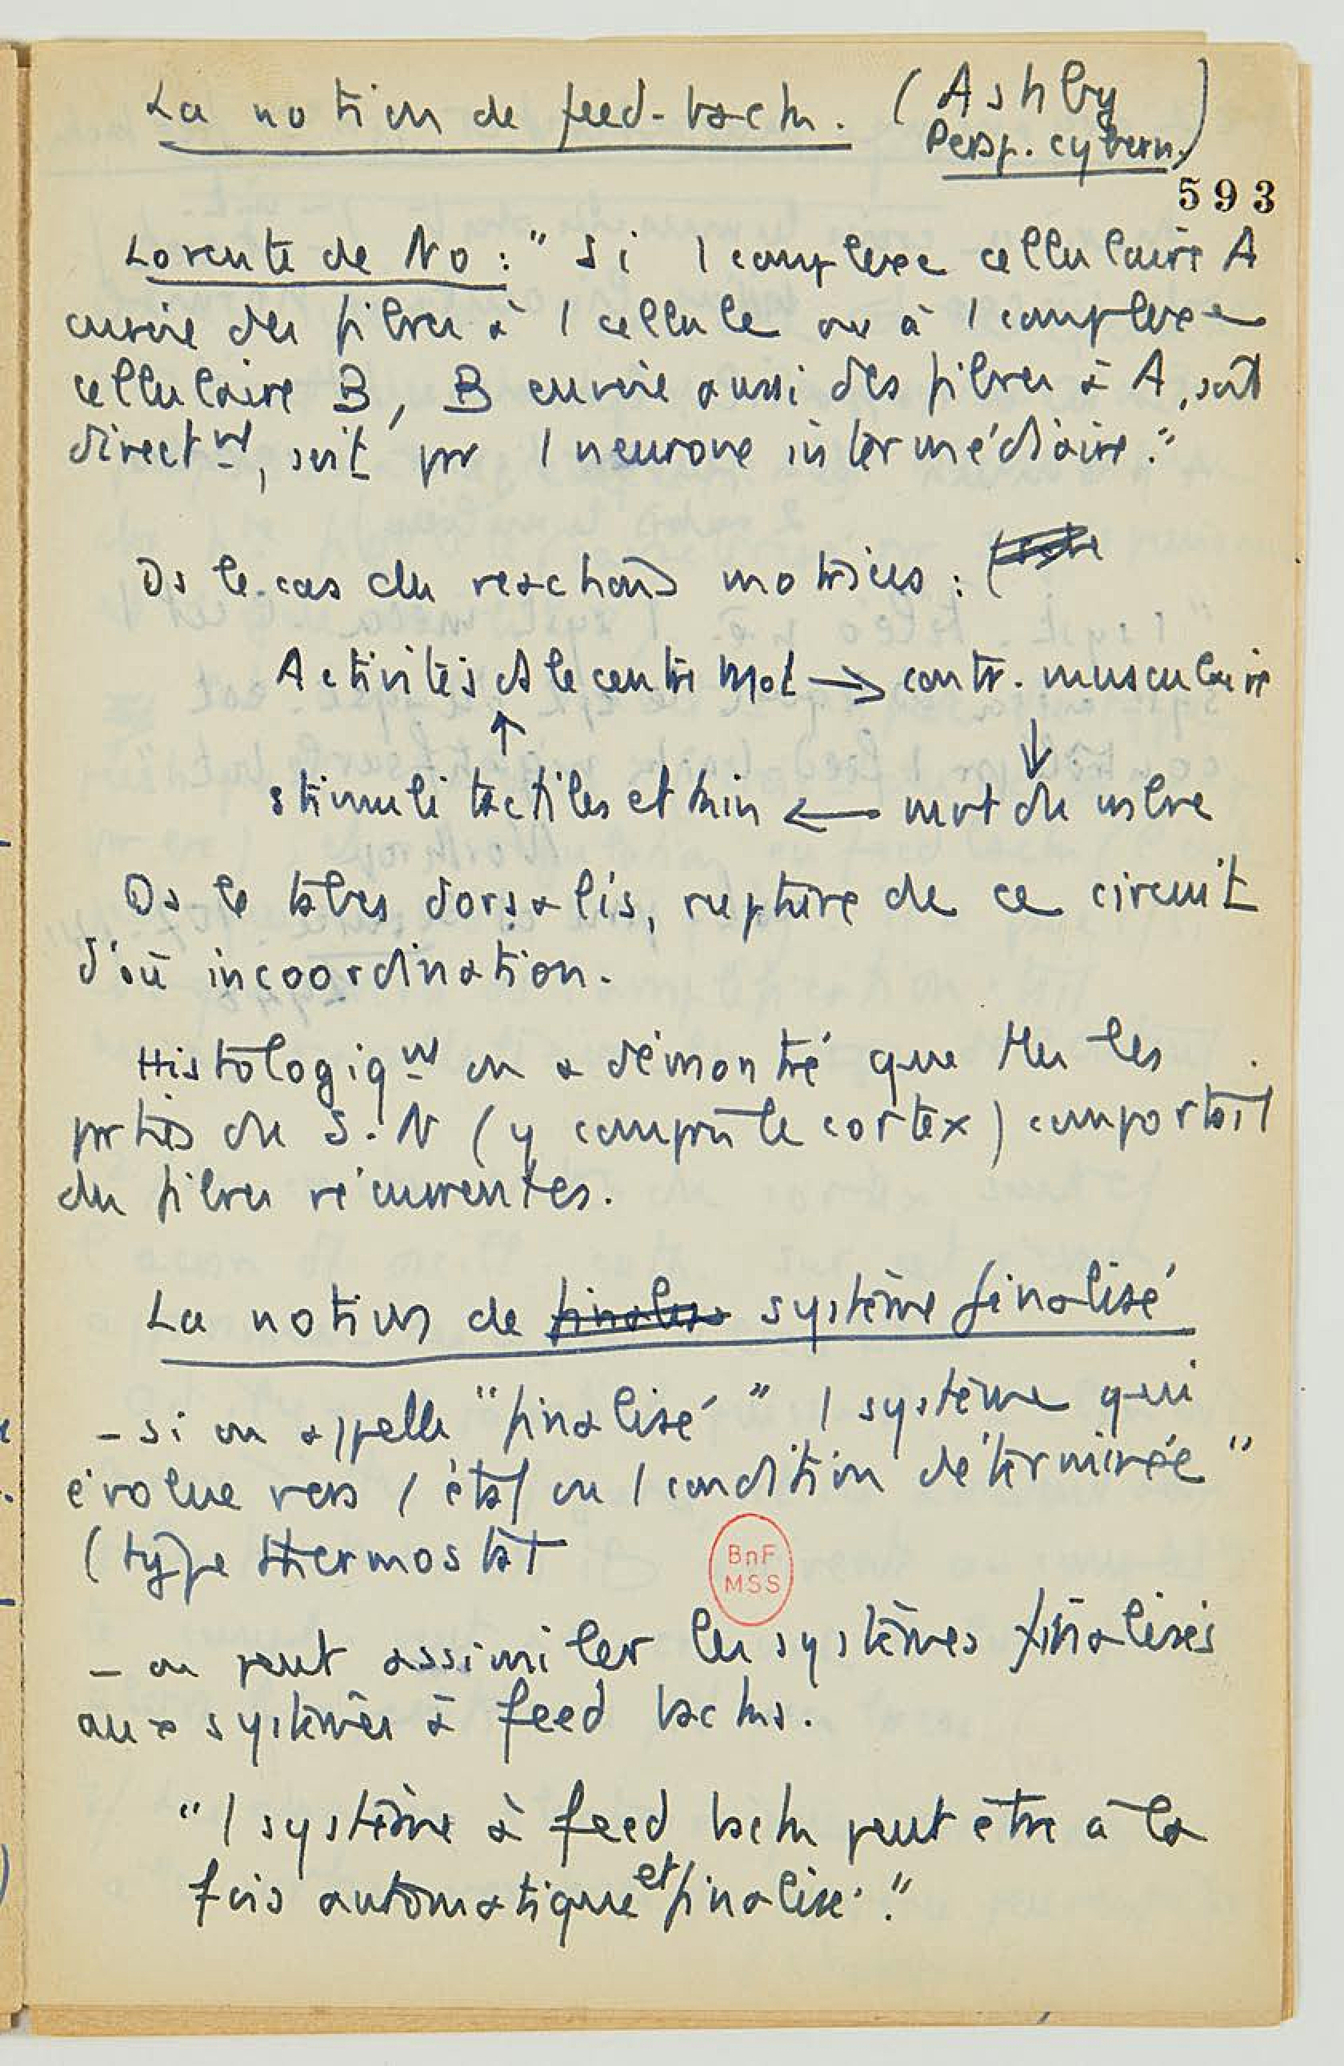 La notion de feed-back. (Ashby
Persp. cybern.)
593
Lorente de No : " Si 1 complexe cellulaire A
envoie des fibres à 1 cellule ou à 1 complexe
cellulaire B, B envoie aussi des fibres à A, soit
directnt, soit pr 1 neurone intermédiaire."
Ds le cas des réactions motrices :
Activités ds le centre mot → contr. musculaire
↑ ↓
stimuli tactiles et kin ← mvt du mbre
Ds le tabes dorsalis, rupture de ce circuit
d'où incoordination.
Histologiqnt on a démontré que ttes les
prties du S.N (y compris le cortex) comportait
des fibres récurrentes.
La notion de système finalisé
- si on appelle "finalisé" 1 système qui
évolue vers 1 état ou 1 condition déterminée"
(type thermostat
BnF
MSS
- on peut assimiler les systèmes finalisés
aux systèmes à feed backs.
"1 système à feed back peut être à la
fois automatique et finalisé."